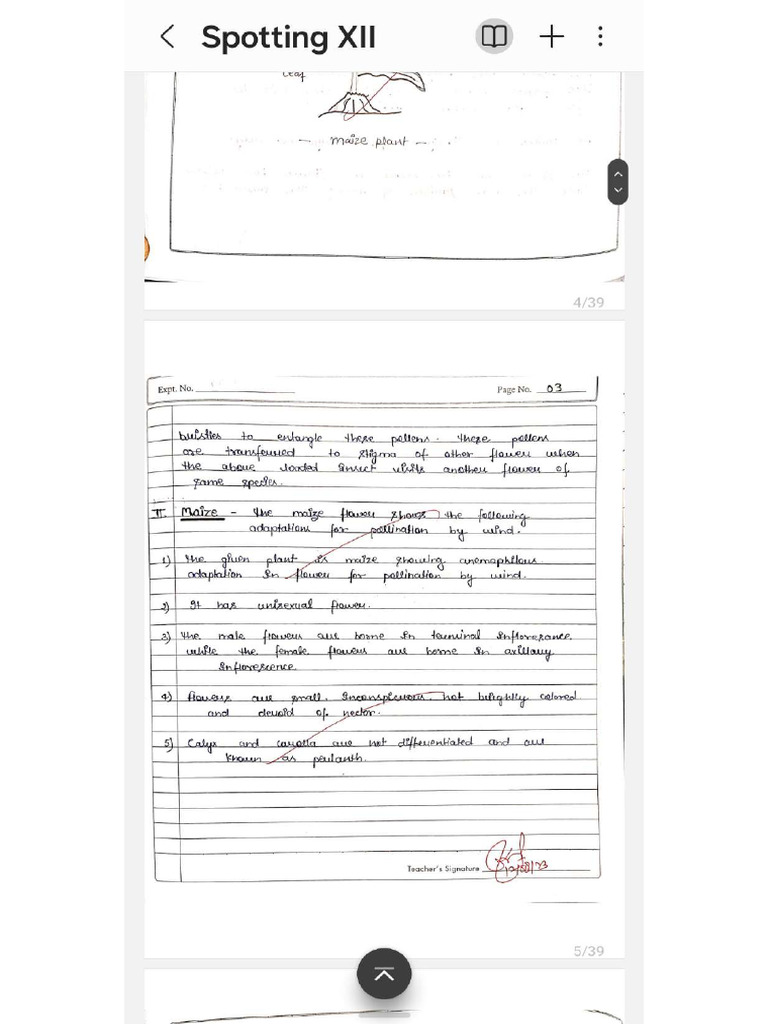 Spotting XII
Leaf
- maize plant -
4/39
Expt. No.
Page No. 03
bristles to entangle these pollens. These pollens
are transferred to stigma of other flower when
the above loaded insect visits another flower of
same species.
II. Maize - The maize flower shows the following
adaptations for pollination by wind.
1) The given plant is maize showing anemophilous
adaptation in flower for pollination by wind.
2) It has unisexual flower.
3) The male flowers are borne in terminal inflorescence
while the female flowers are borne in axillary
inflorescence.
4) flowers are small, inconspicuous, not brightly colored
and devoid of nector.
5) Calyx and corolla are not differentiated and are
known as perianth.
Teacher's Signature
5/39